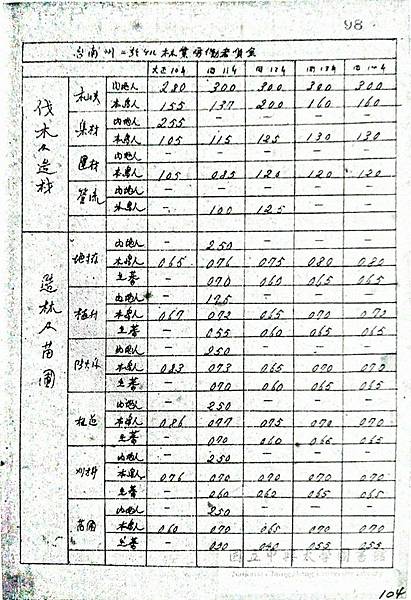 98
台南州ニ於ケル林業労働者賃金
大正10年 同11年 同12年 同13年 同14年
伐木及造材
内地人 2.80 3.00 3.00 3.00 3.00
本島人 1.55 1.37 2.00 1.60 1.60
集材 内地人 2.55 — — — —
本島人 1.05 1.15 1.25 1.30 1.30
運材 内地人 — — — — —
本島人 1.05 0.85 1.20 1.20 1.20
管流 内地人 — — — — —
本島人 — 1.00 1.25 — —
造林及苗圃
地拵 内地人 — 2.50 — — —
本島人 0.65 0.76 0.75 0.80 0.80
生蕃 — 0.70 0.60 0.65 0.65
植付 内地人 — 1.75 — — —
本島人 0.67 0.72 0.65 0.70 0.72
生蕃 — 0.55 0.60 0.65 0.65
内地人 — 2.50 — — —
本島人 0.83 0.73 0.65 0.70 0.70
生蕃 — 0.70 0.60 0.65 0.65
内地人 — 2.50 — — —
本島人 0.86 0.77 0.75 0.70 0.70
生蕃 — 0.70 0.60 0.65 0.65
内地人 — 2.50 — — —
本島人 0.76 0.70 0.70 0.70 0.70
生蕃 — 0.60 0.60 0.65 0.65
苗圃 内地人 — 2.50 — — —
本島人 0.60 0.70 0.65 0.70 0.70
生蕃 — 0.55 0.55
國立中興大學圖書館
104